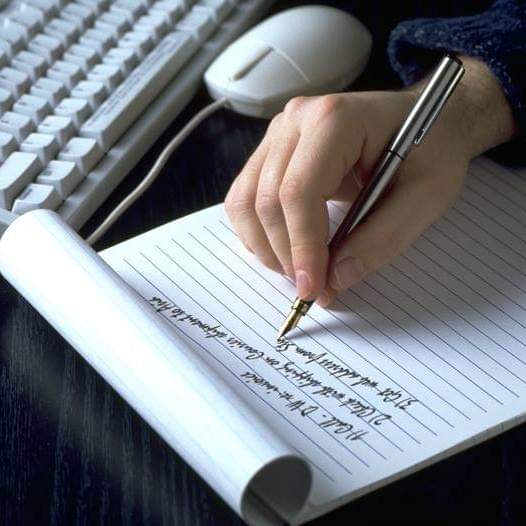 1) Call D W re: invoice
2) Check with shipping on shipment to
3) Get web address from